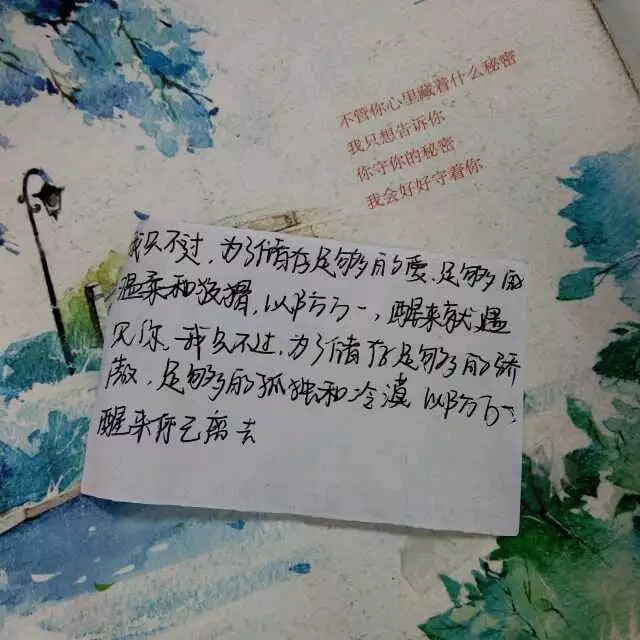 不管你心里藏着什么秘密
我只想告诉你
你守你的秘密
我会好好守着你
我只不过,为了储存足够的爱,足够的
温柔和狡猾,以防万一,醒来就遇
见你,我只不过,为了储存足够的骄
傲,足够的孤独和冷漠 以防万一
醒来你已离去